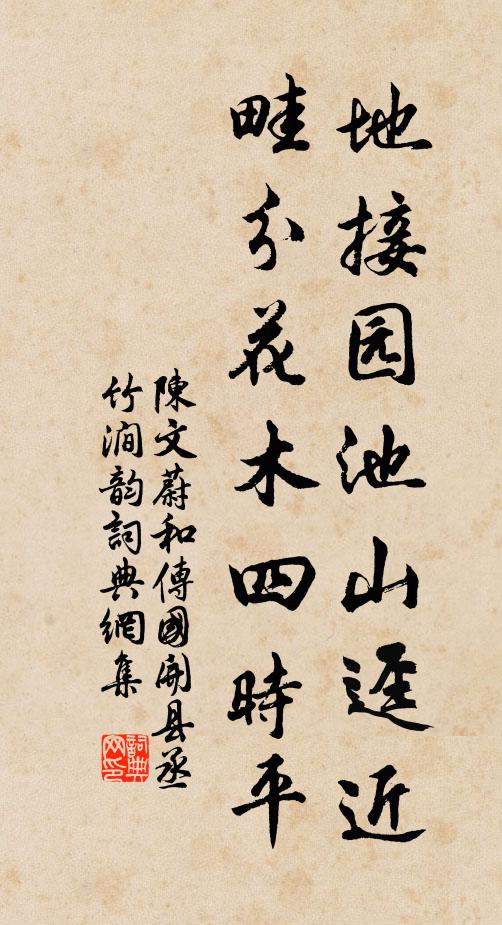 地接园池山迳近
畦分花木四時平
陳文蔚和傳國開县丞
竹澗韵詞典網集
詞典网印